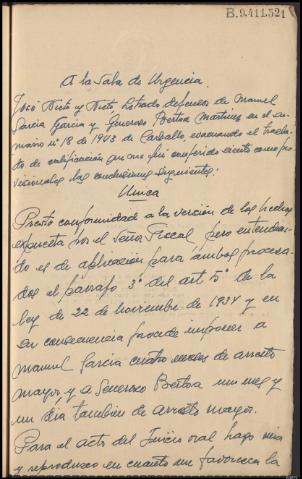 B.9.411.521
A la Sala de Urgencia.
José Nieto y Nieto, letrado defensor de Manuel
Garcia Garcia y Generoso Bertoa Martinez en el su-
mario nº 18 de 1943 de Carballo evacuando el trasla-
do de calificación que me fué conferido siento como pro-
visionales las conclusiones siguientes:
Unica
Presto conformidad a la versión de los hechos
expuesta por el Señor Fiscal pero entendien-
do es de aplicación para ambos procesa-
dos el párrafo 3º del art 5º de la
ley de 22 de noviembre de 1934 y en
su consecuencia procede imponer a
Manuel Garcia cuatro meses de arresto
mayor y a Generoso Bertoa un mes y
un dia tambien de arresto mayor.
Para el acto del Juicio oral hago mia
y reproduzco en cuanto me favorezca la